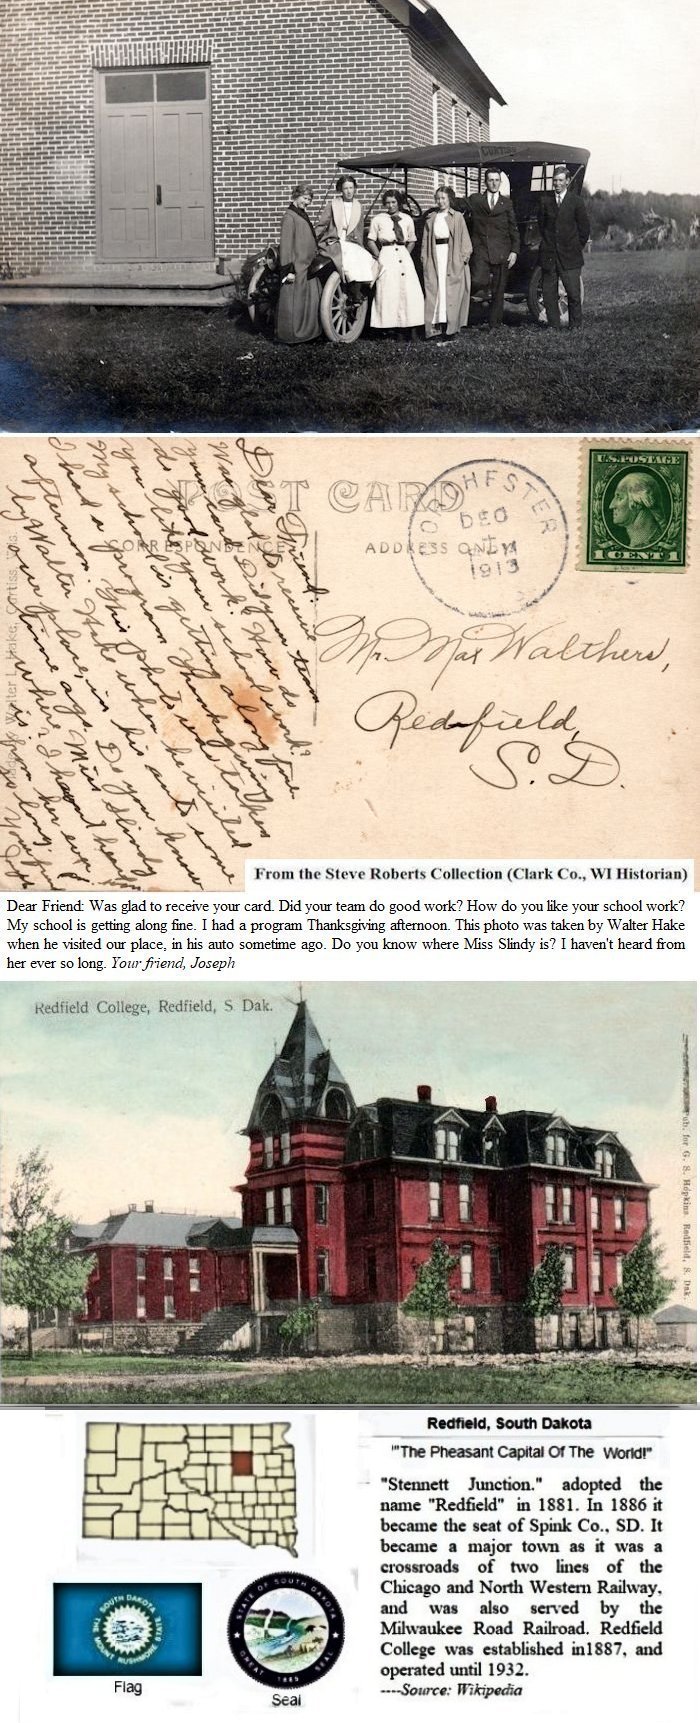 CURTISS
POST CARD
CORRESPONDENCE
ADDRESS ONLY
DEC
1913
U.S. POSTAGE
1 CENT 1
Dear Friend:
Was glad to receive
your card. Did your team
do good work? How do
you like your school work?
My school is getting along fine.
I had a program Thanksgiving
afternoon. This photo was taken
by Walter Hake when he visited
our place, in his auto some
time ago. Do you know
where Miss Slindy
is? I haven't heard
from her ever
so long.
Walter L. Hake, Curtiss, Wis.
Mr. Max Walthers,
Redfield,
S. D.
From the Steve Roberts Collection (Clark Co., WI Historian)
Dear Friend: Was glad to receive your card. Did your team do good work? How do you like your school work?
My school is getting along fine. I had a program Thanksgiving afternoon. This photo was taken by Walter Hake
when he visited our place, in his auto sometime ago. Do you know where Miss Slindy is? I haven't heard from
her ever so long. Your friend, Joseph
Redfield College, Redfield, S. Dak.
Pub. for G. S. Hopkins, Redfield, S. Dak.
SOUTH DAKOTA
THE MOUNT RUSHMORE STATE
Flag
STATE OF SOUTH DAKOTA
GREAT 1889 SEAL
Seal
Redfield, South Dakota
"'The Pheasant Capital Of The World!"
"Stennett Junction." adopted the
name "Redfield" in 1881. In 1886 it
became the seat of Spink Co., SD. It
became a major town as it was a
crossroads of two lines of the
Chicago and North Western Railway,
and was also served by the
Milwaukee Road Railroad. Redfield
College was established in1887, and
operated until 1932.
----Source: Wikipedia